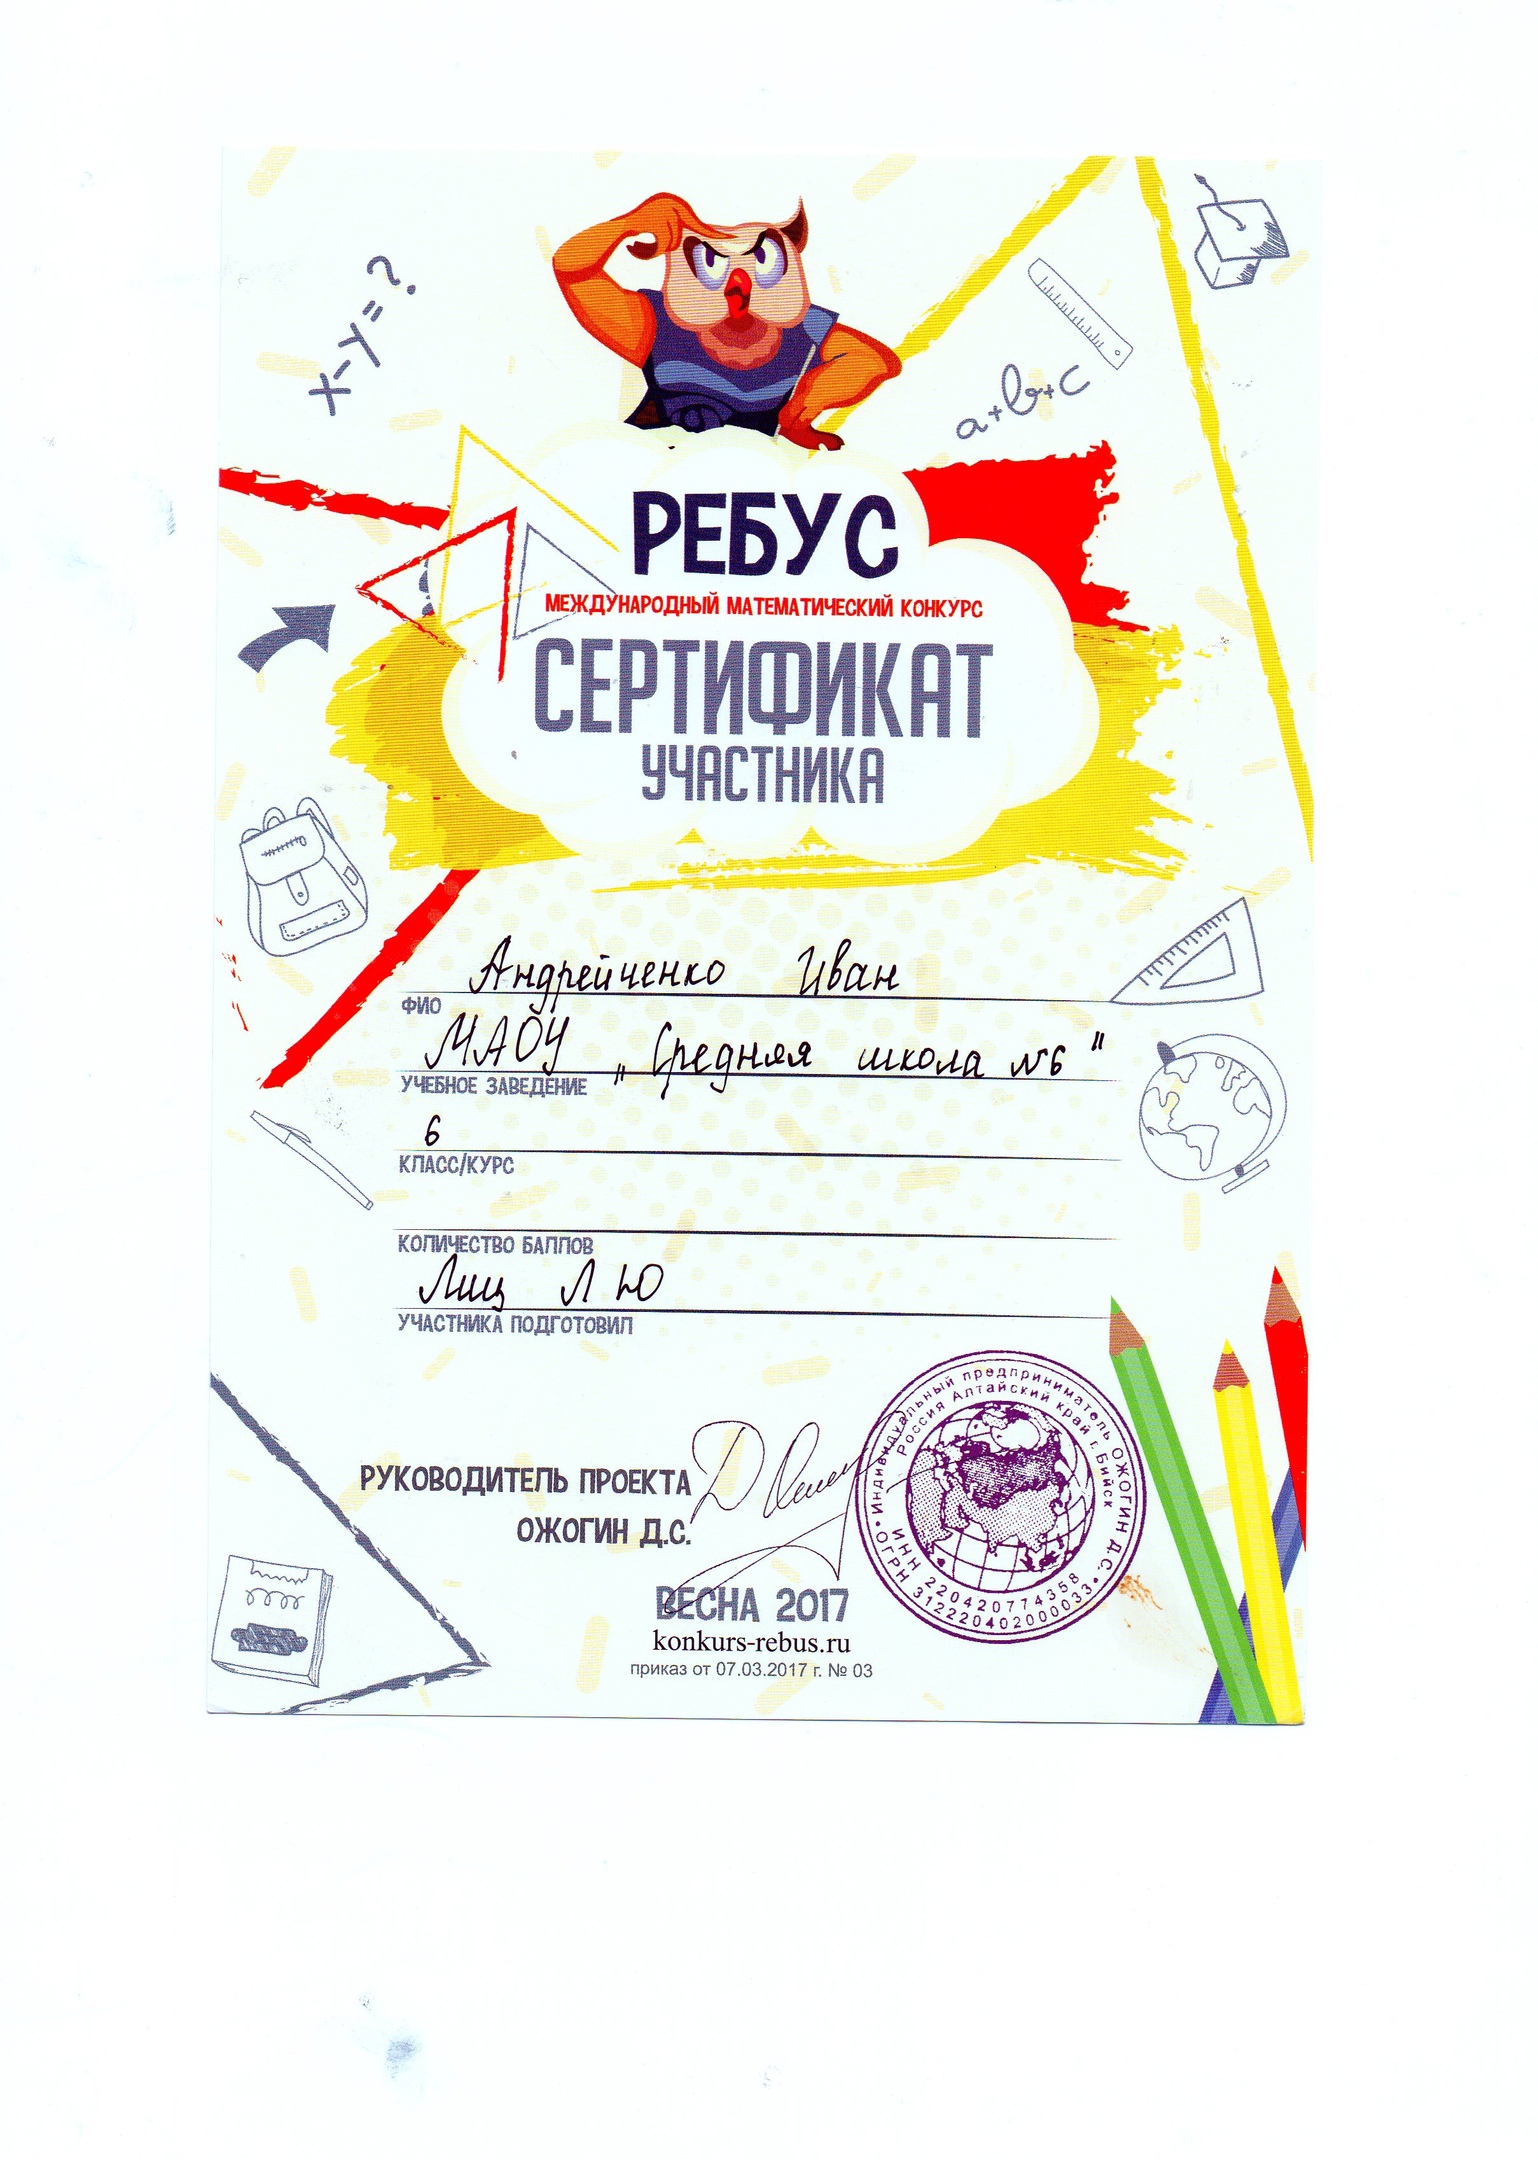 x-y=?
a+b+c
РЕБУС
МЕЖДУНАРОДНЫЙ МАТЕМАТИЧЕСКИЙ КОНКУРС
СЕРТИФИКАТ
УЧАСТНИКА
Андрейченко Иван
ФИО
МАОУ „Средняя школа №6"
УЧЕБНОЕ ЗАВЕДЕНИЕ
6
КЛАСС/КУРС
КОЛИЧЕСТВО БАЛЛОВ
Лиц Л Ю
УЧАСТНИКА ПОДГОТОВИЛ
РУКОВОДИТЕЛЬ ПРОЕКТА
ОЖОГИН Д.С.
Индивидуальный предприниматель ОЖОГИН Д.С.
Россия Алтайский край г.Бийск
ИНН 220420774358
ОГРН 312220402000033
ВЕСНА 2017
konkurs-rebus.ru
приказ от 07.03.2017 г. № 03